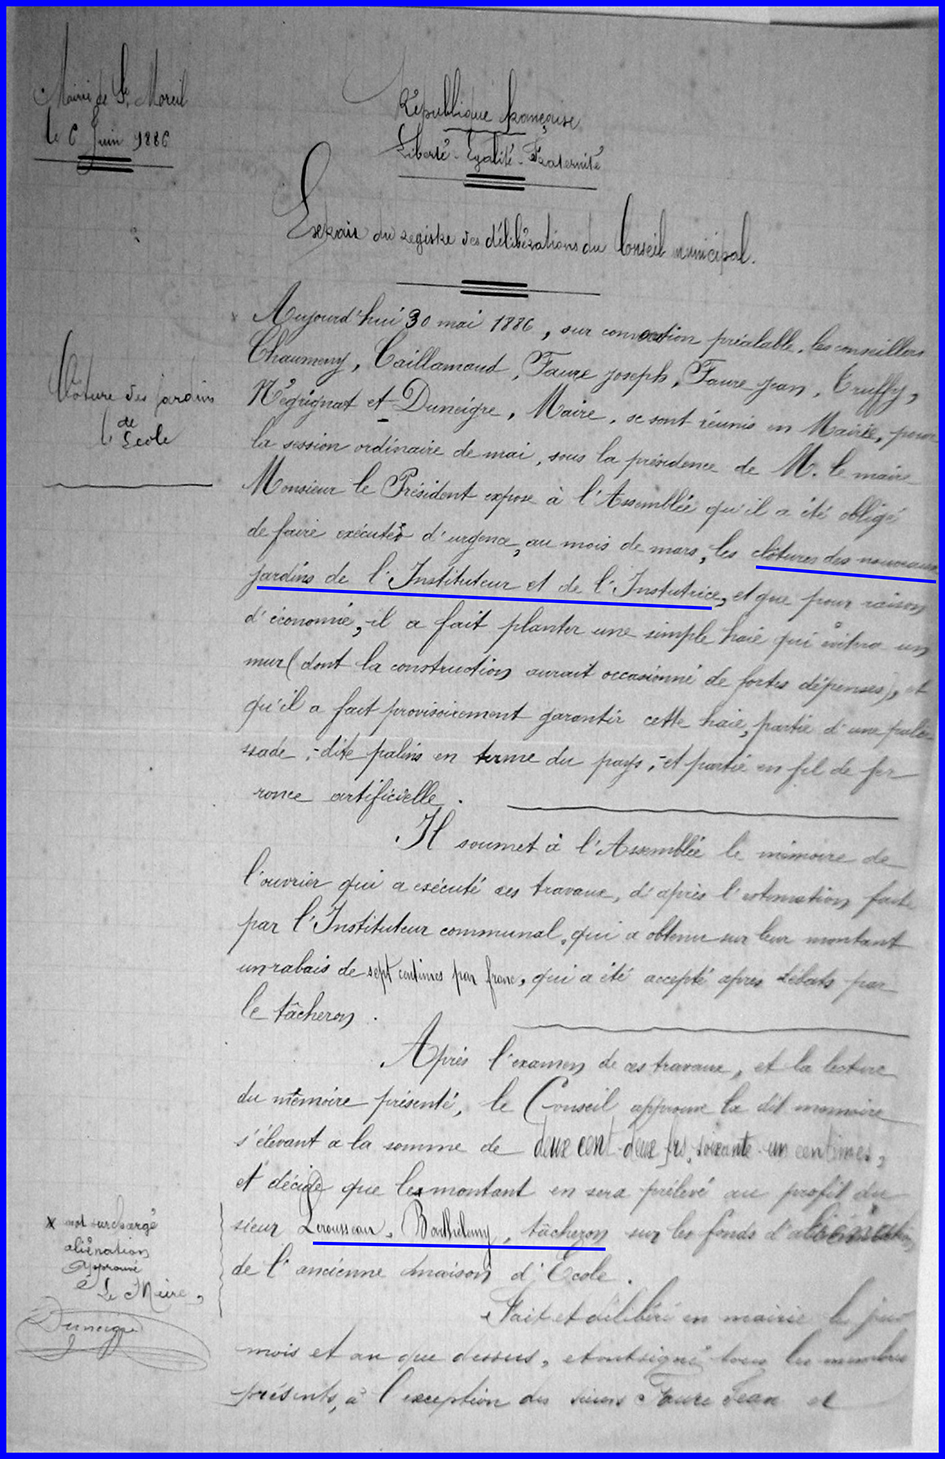 Mairie de St Moreil
le 6 Juin 1886
République française
Liberté - Egalité - Fraternité
Extrait du registre des délibérations du Conseil municipal.
Aujourd'hui 30 mai 1886, sur convocation préalable, les conseillers
Chaumeny, Caillamaud, Faure Joseph, Faure Jean, Truffy,
Négrignat et Duneigre, Maire, se sont réunis en Mairie, pour
la session ordinaire de mai, sous la présidence de M. le maire
Clôture des jardins
de
l'Ecole
Monsieur le Président expose à l'Assemblée qu'il a été obligé
de faire exécuter d'urgence, au mois de mars, les clôtures des nouveaux
jardins de l'Instituteur et de l'Institutrice, et que pour raison
d'économie, il a fait planter une simple haie qui évitera un
mur (dont la construction aurait occasionné de fortes dépenses), et
qu'il a fait provisoirement garantir cette haie, partie d'une palis-
sade, - dite palins en terme du pays, - et partie en fil de fer
ronce artificielle.
Il soumet à l'Assemblée le mémoire de
l'ouvrier qui a exécuté ses travaux, d'après l'estimation faite
par l'Instituteur communal, qui a obtenu sur leur montant
un rabais de sept centimes par franc, qui a été accepté après débats par
le tâcheron.
Après l'examen de ces travaux, et la lecture
du mémoire présenté, le Conseil approuve la dit mémoire
s'élevant a la somme de deux cent deux frs, soixante un centimes,
et décide que le montant en sera prélevé au profit du
sieur Lerousseau, Barthélemy, tâcheron sur les fonds d'aliénation
de l'ancienne maison d'Ecole.
x mot surchargé
aliénation
approuvé
Le Maire,
Duneigre
Fait et délibéré en mairie les jour
mois et an que dessus, et ont signé tous les membres
présents, à l'exception des sieurs Faure Jean et